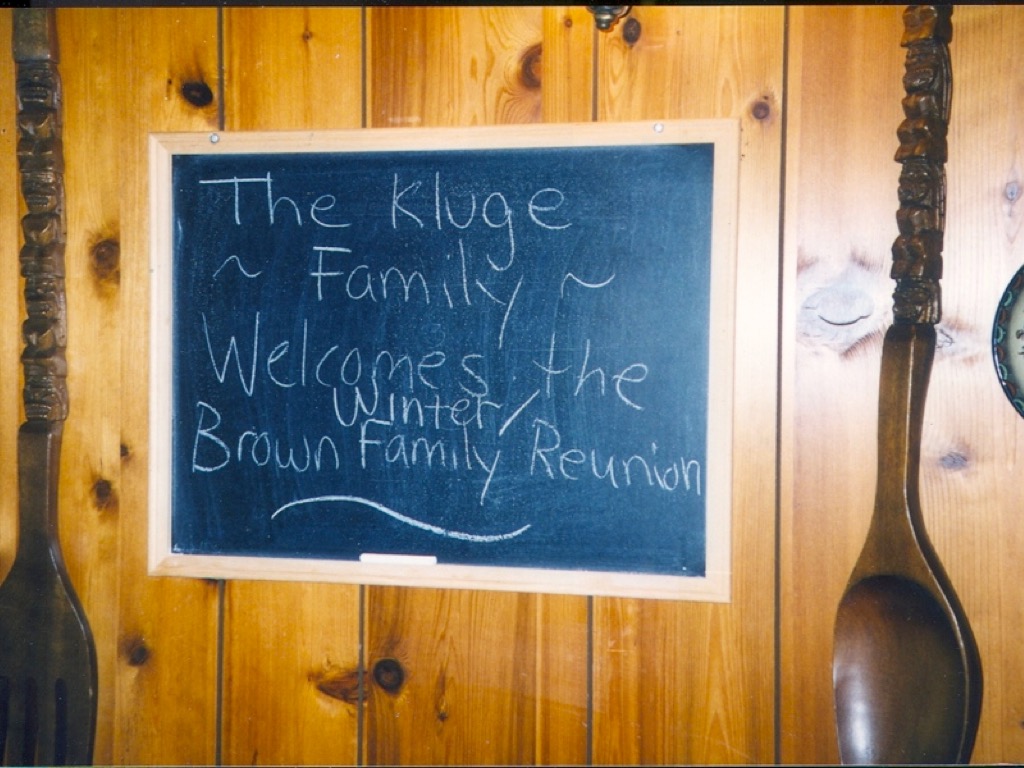 The Kluge
~ Family ~
Welcomes the
Winter/
Brown Family Reunion